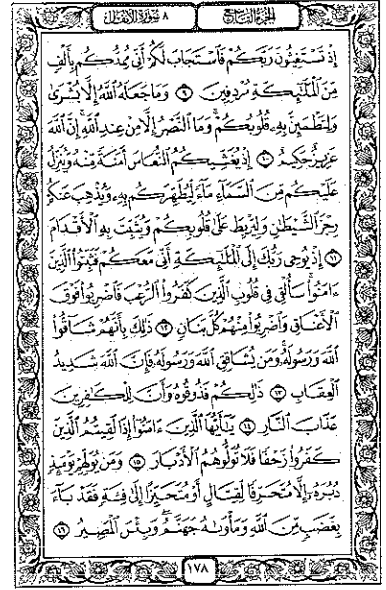 الجزء التاسع
٨ سورة الأنفال
إِذْ تَسْتَغِيثُونَ رَبَّكُمْ فَاسْتَجَابَ لَكُمْ أَنِّي مُمِدُّكُم بِأَلْفٍ
مِّنَ الْمَلَٰئِكَةِ مُرْدِفِينَ ٩ وَمَا جَعَلَهُ اللَّهُ إِلَّا بُشْرَىٰ
وَلِتَطْمَئِنَّ بِهِ قُلُوبُكُمْ وَمَا النَّصْرُ إِلَّا مِنْ عِندِ اللَّهِ إِنَّ اللَّهَ
عَزِيزٌ حَكِيمٌ ١٠ إِذْ يُغَشِّيكُمُ النُّعَاسَ أَمَنَةً مِّنْهُ وَيُنَزِّلُ
عَلَيْكُم مِّنَ السَّمَاءِ مَاءً لِّيُطَهِّرَكُم بِهِ وَيُذْهِبَ عَنكُمْ
رِجْزَ الشَّيْطَٰنِ وَلِيَرْبِطَ عَلَىٰ قُلُوبِكُمْ وَيُثَبِّتَ بِهِ الْأَقْدَامَ
١١ إِذْ يُوحِي رَبُّكَ إِلَى الْمَلَٰئِكَةِ أَنِّي مَعَكُمْ فَثَبِّتُوا الَّذِينَ
ءَامَنُوا سَأُلْقِي فِي قُلُوبِ الَّذِينَ كَفَرُوا الرُّعْبَ فَاضْرِبُوا فَوْقَ
الْأَعْنَاقِ وَاضْرِبُوا مِنْهُمْ كُلَّ بَنَانٍ ١٢ ذَٰلِكَ بِأَنَّهُمْ شَاقُّوا
اللَّهَ وَرَسُولَهُ وَمَن يُشَاقِقِ اللَّهَ وَرَسُولَهُ فَإِنَّ اللَّهَ شَدِيدُ
الْعِقَابِ ١٣ ذَٰلِكُمْ فَذُوقُوهُ وَأَنَّ لِلْكَٰفِرِينَ
عَذَابَ النَّارِ ١٤ يَٰأَيُّهَا الَّذِينَ ءَامَنُوا إِذَا لَقِيتُمُ الَّذِينَ
كَفَرُوا زَحْفًا فَلَا تُوَلُّوهُمُ الْأَدْبَارَ ١٥ وَمَن يُوَلِّهِمْ يَوْمَئِذٍ
دُبُرَهُ إِلَّا مُتَحَرِّفًا لِّقِتَالٍ أَوْ مُتَحَيِّزًا إِلَىٰ فِئَةٍ فَقَدْ بَاءَ
بِغَضَبٍ مِّنَ اللَّهِ وَمَأْوَىٰهُ جَهَنَّمُ وَبِئْسَ الْمَصِيرُ ١٦
١٧٨